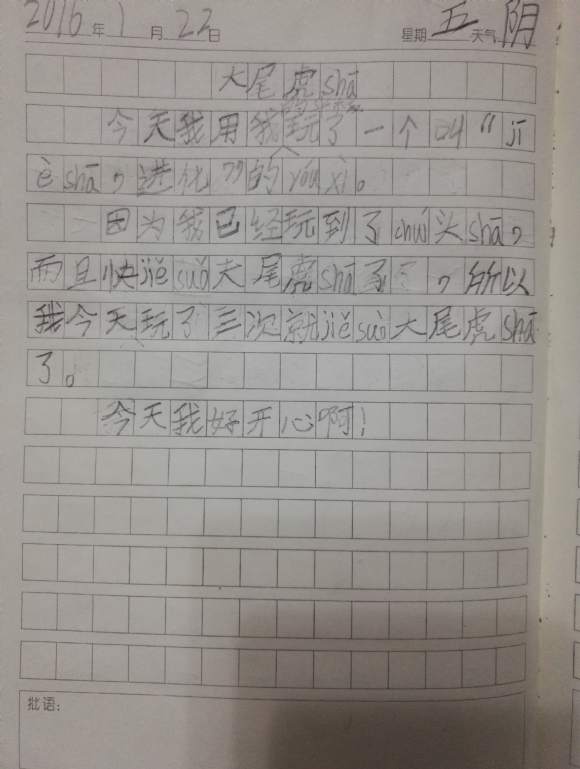 2016年1月22日 星期五天气阴
大尾虎shā
的平板
今天我用我玩了一个叫“jī
è shā,进化”的yóu xì。
因为我已经玩到了chuí头shā,
而且快jiě suǒ大尾虎shā了,所以
我今天玩了三次就jiě suǒ大尾虎shā
了。
今天我好开心啊!
批语: